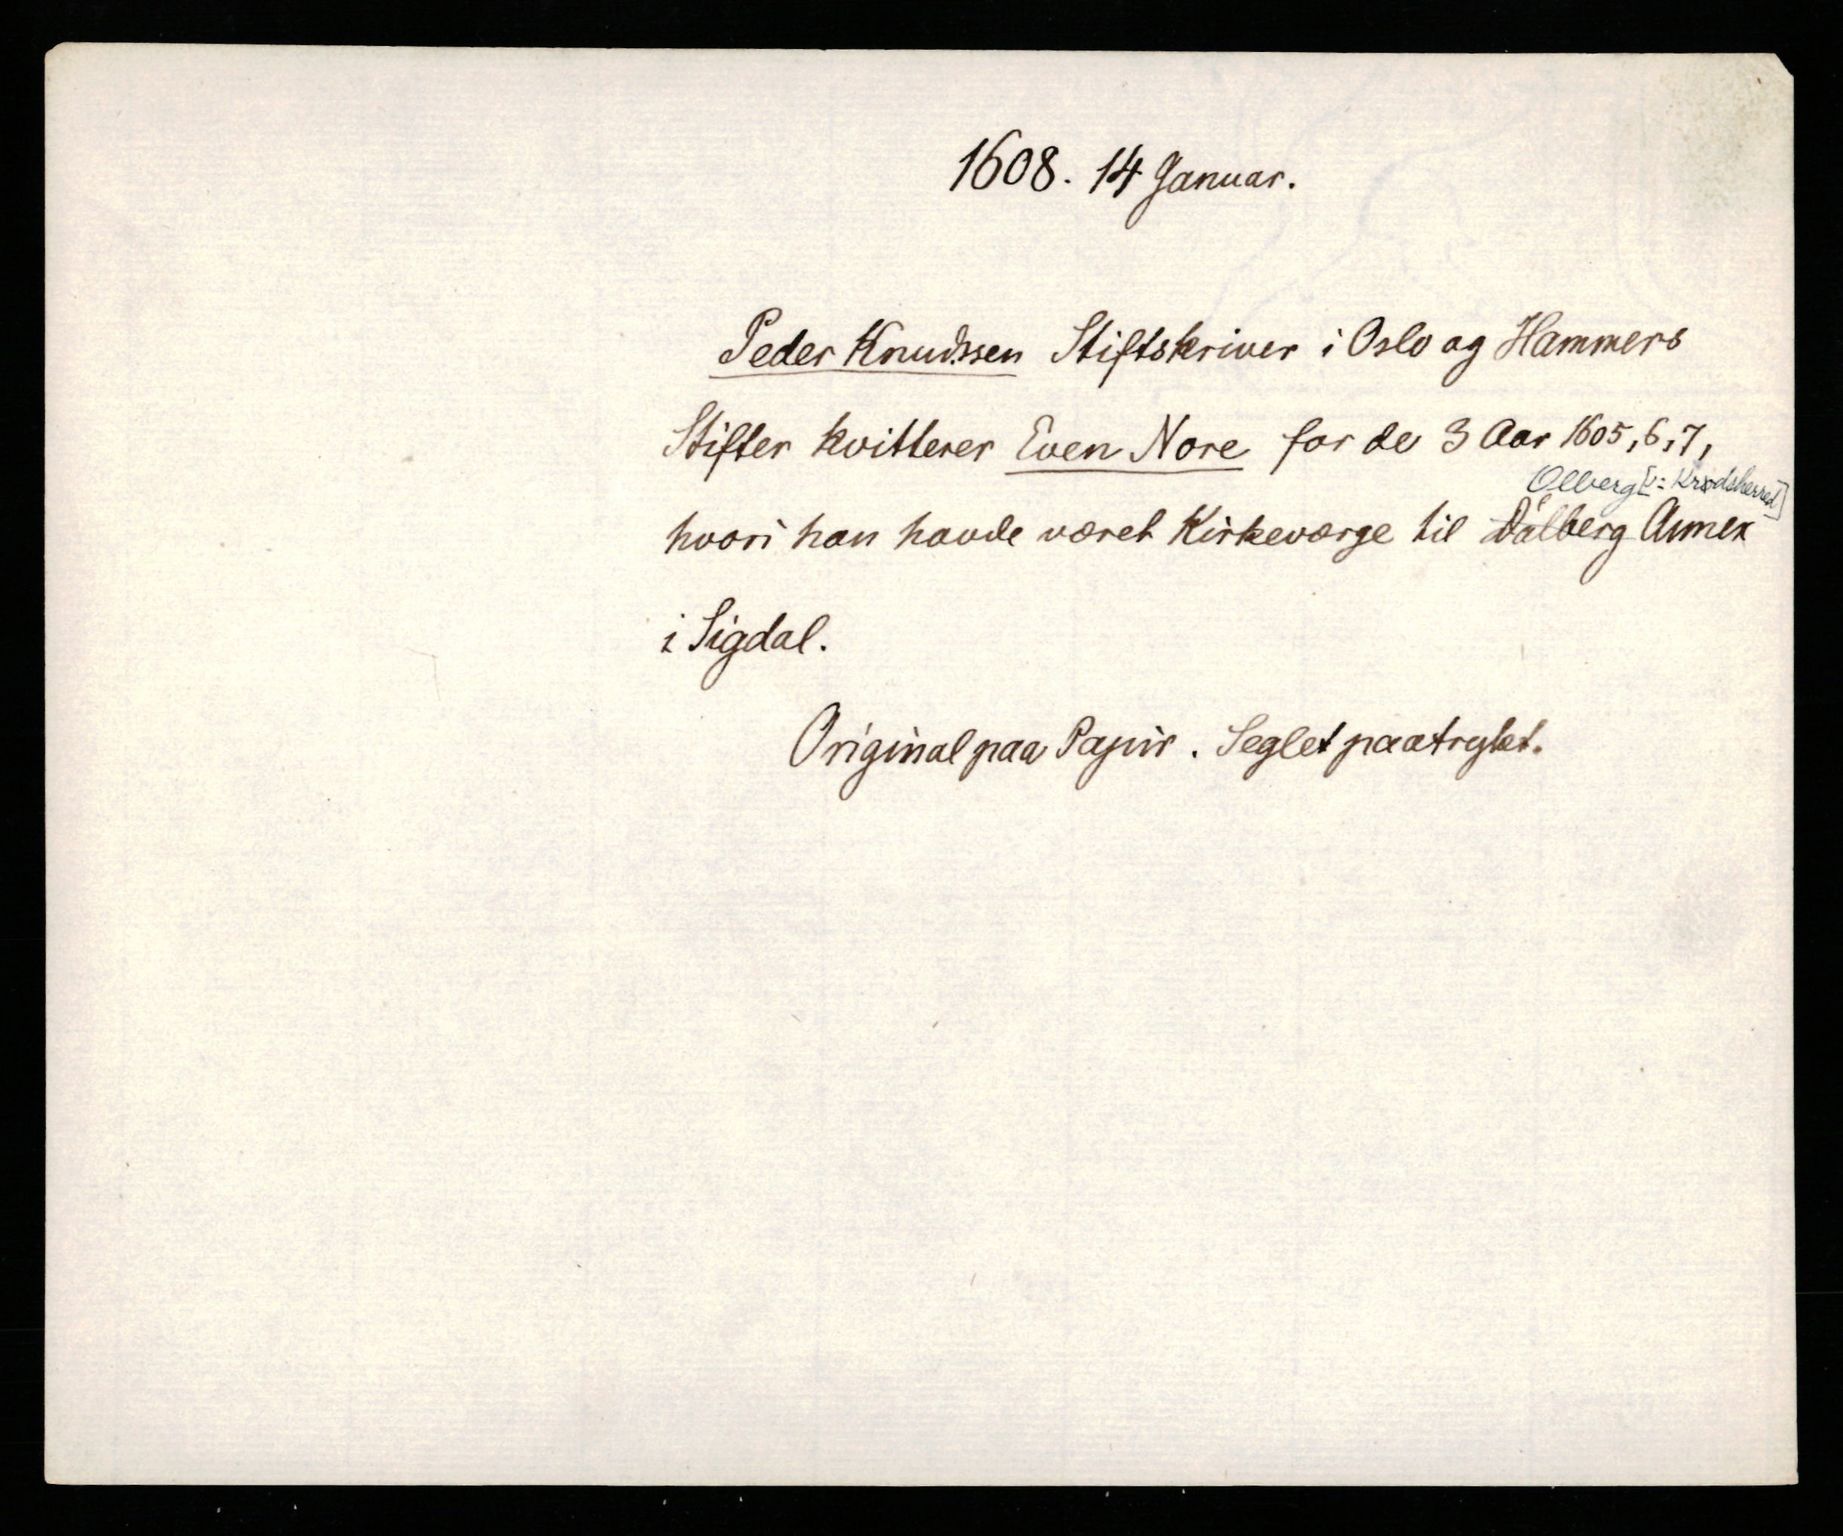 1608. 14 Januar.
Peder Knudssen Stiftskriver i Oslo og Hammers
Stifter kvitterer Even Nore for de 3 Aar 1605, 6, 7,
Olberg [ɔ: Krødsherred]
hvori han havde været Kirkeværge til Dålberg Annex
i Sigdal.
Original paa Papir. Seglet paatrykt.